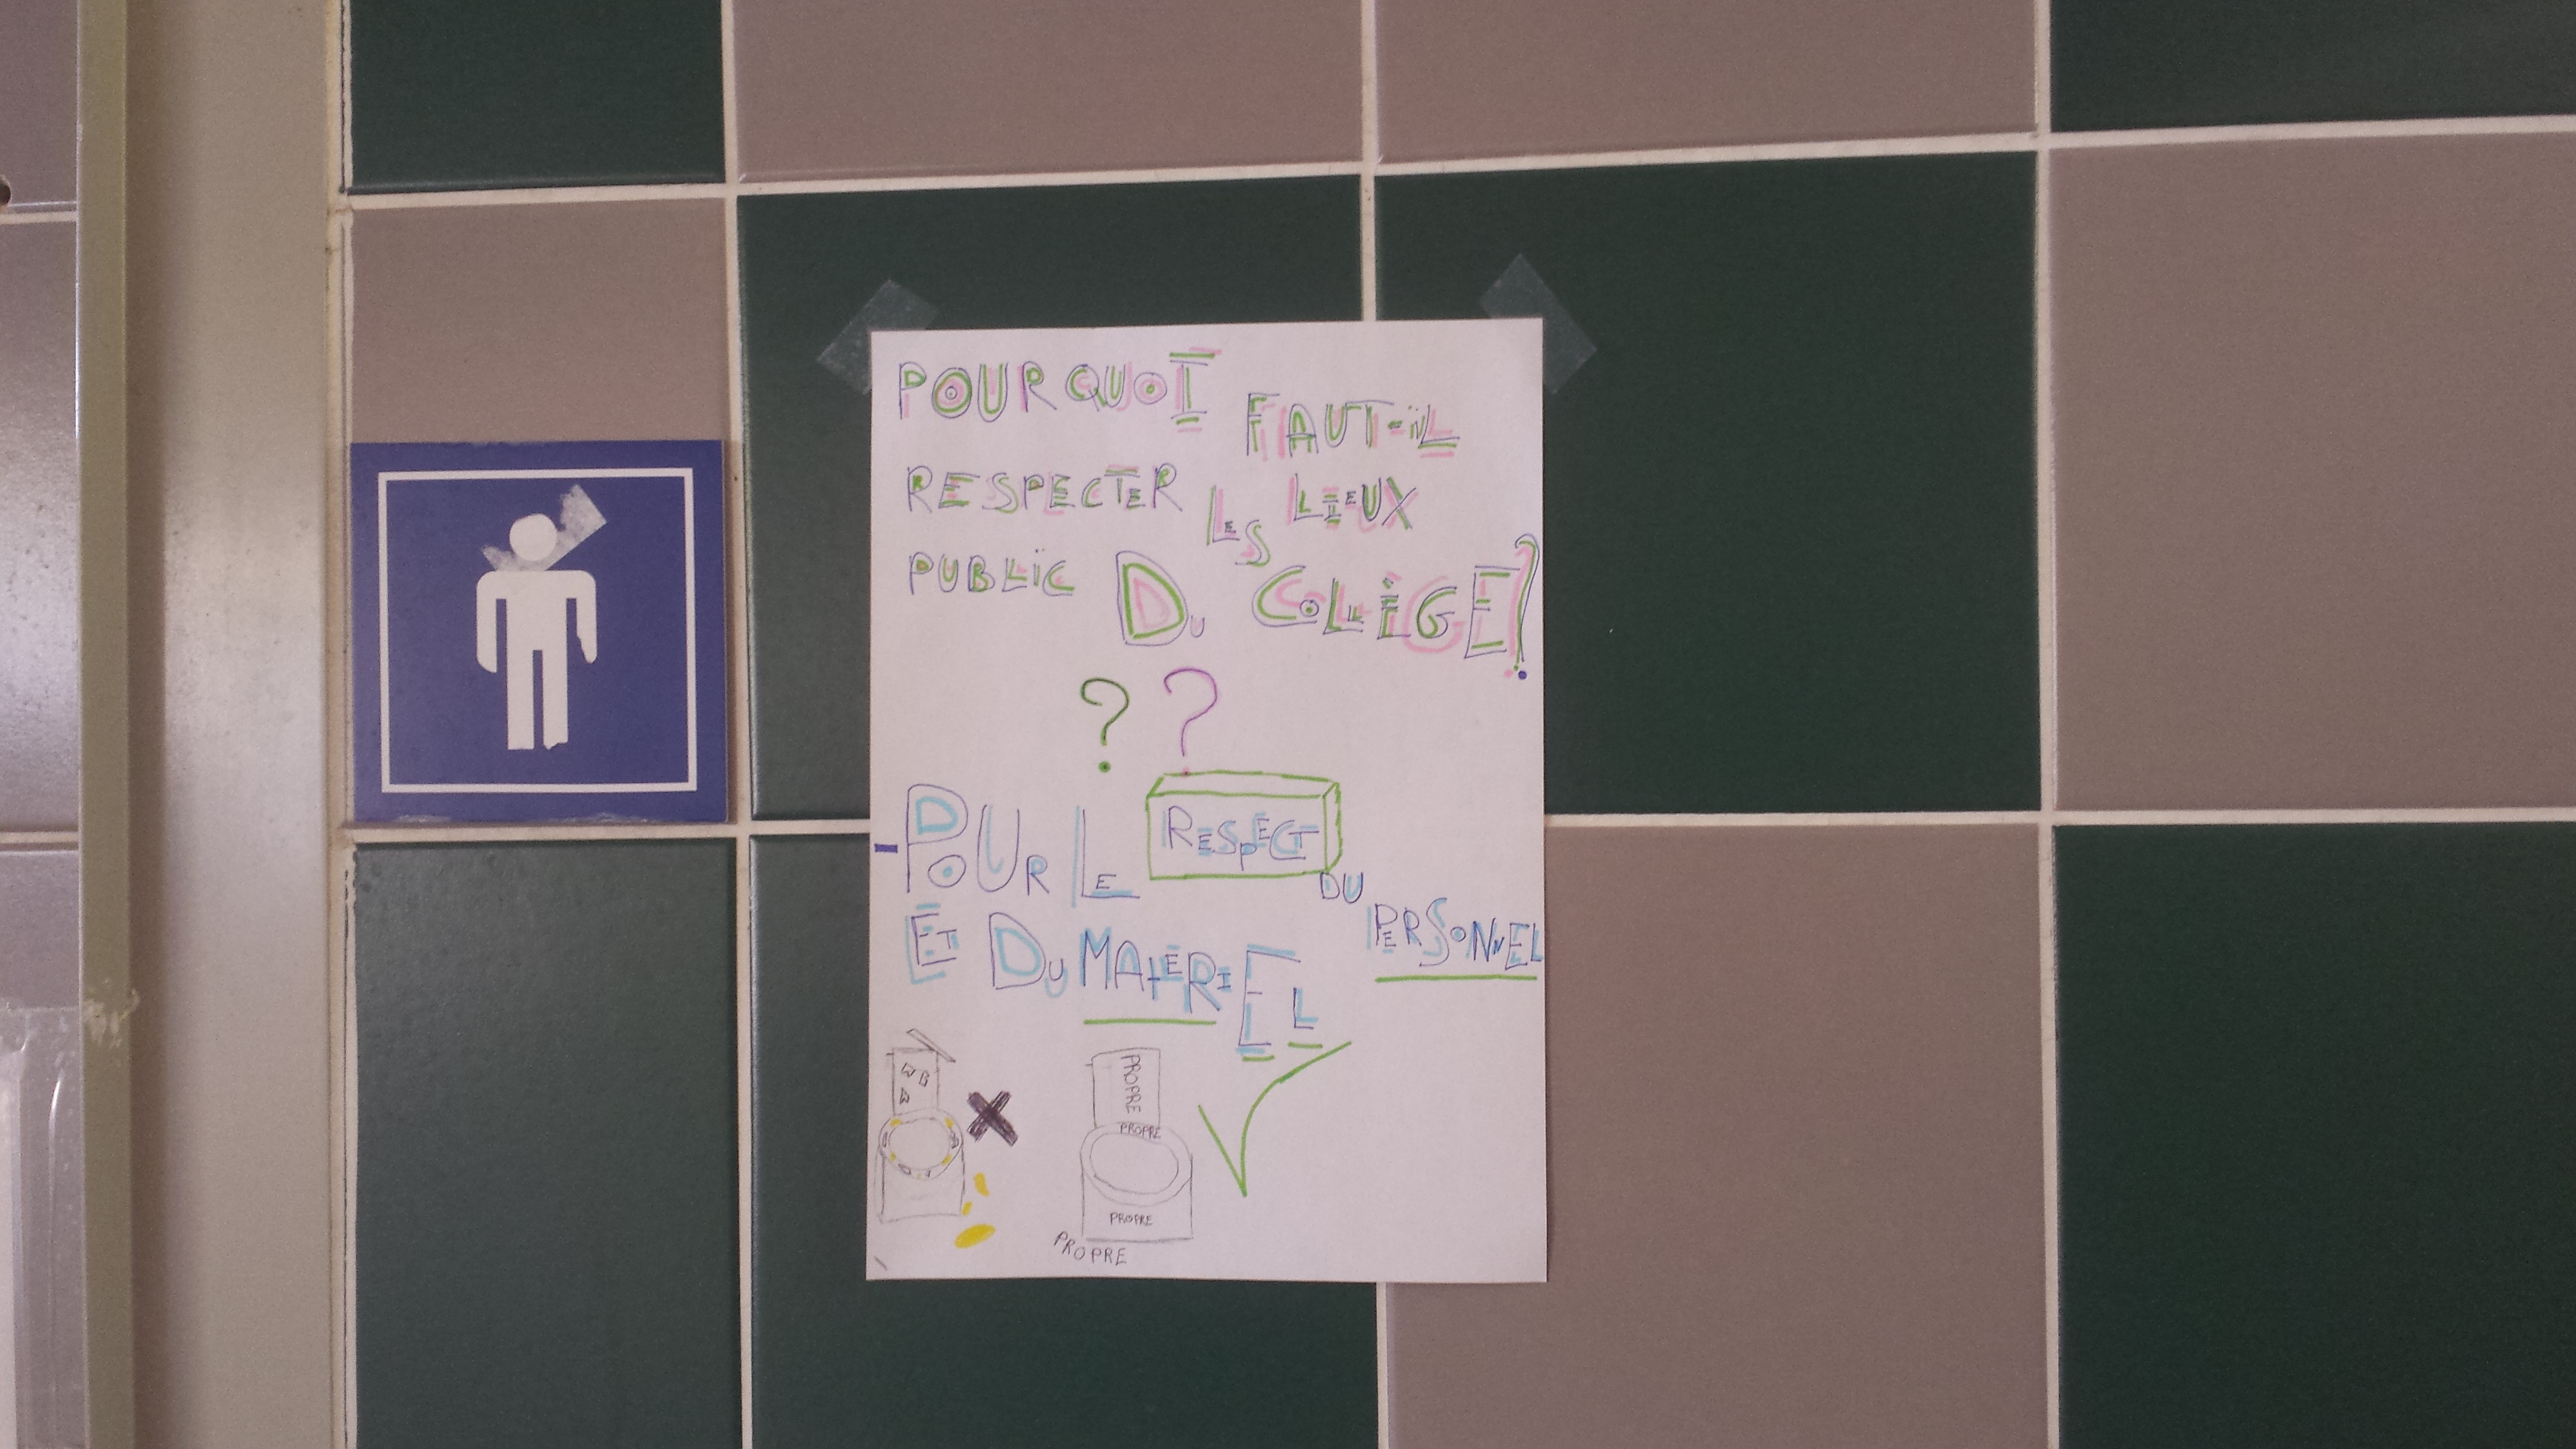 POURQUOI FAUT-iL
RESPECTER LES LiEUX
PUBLiC DU COLLÈGE?
? ?
- POUR LE RESPECT DU
PERSONNEL
ET DU MATERIEL
PROPRE
PROPRE
PROPRE
PROPRE